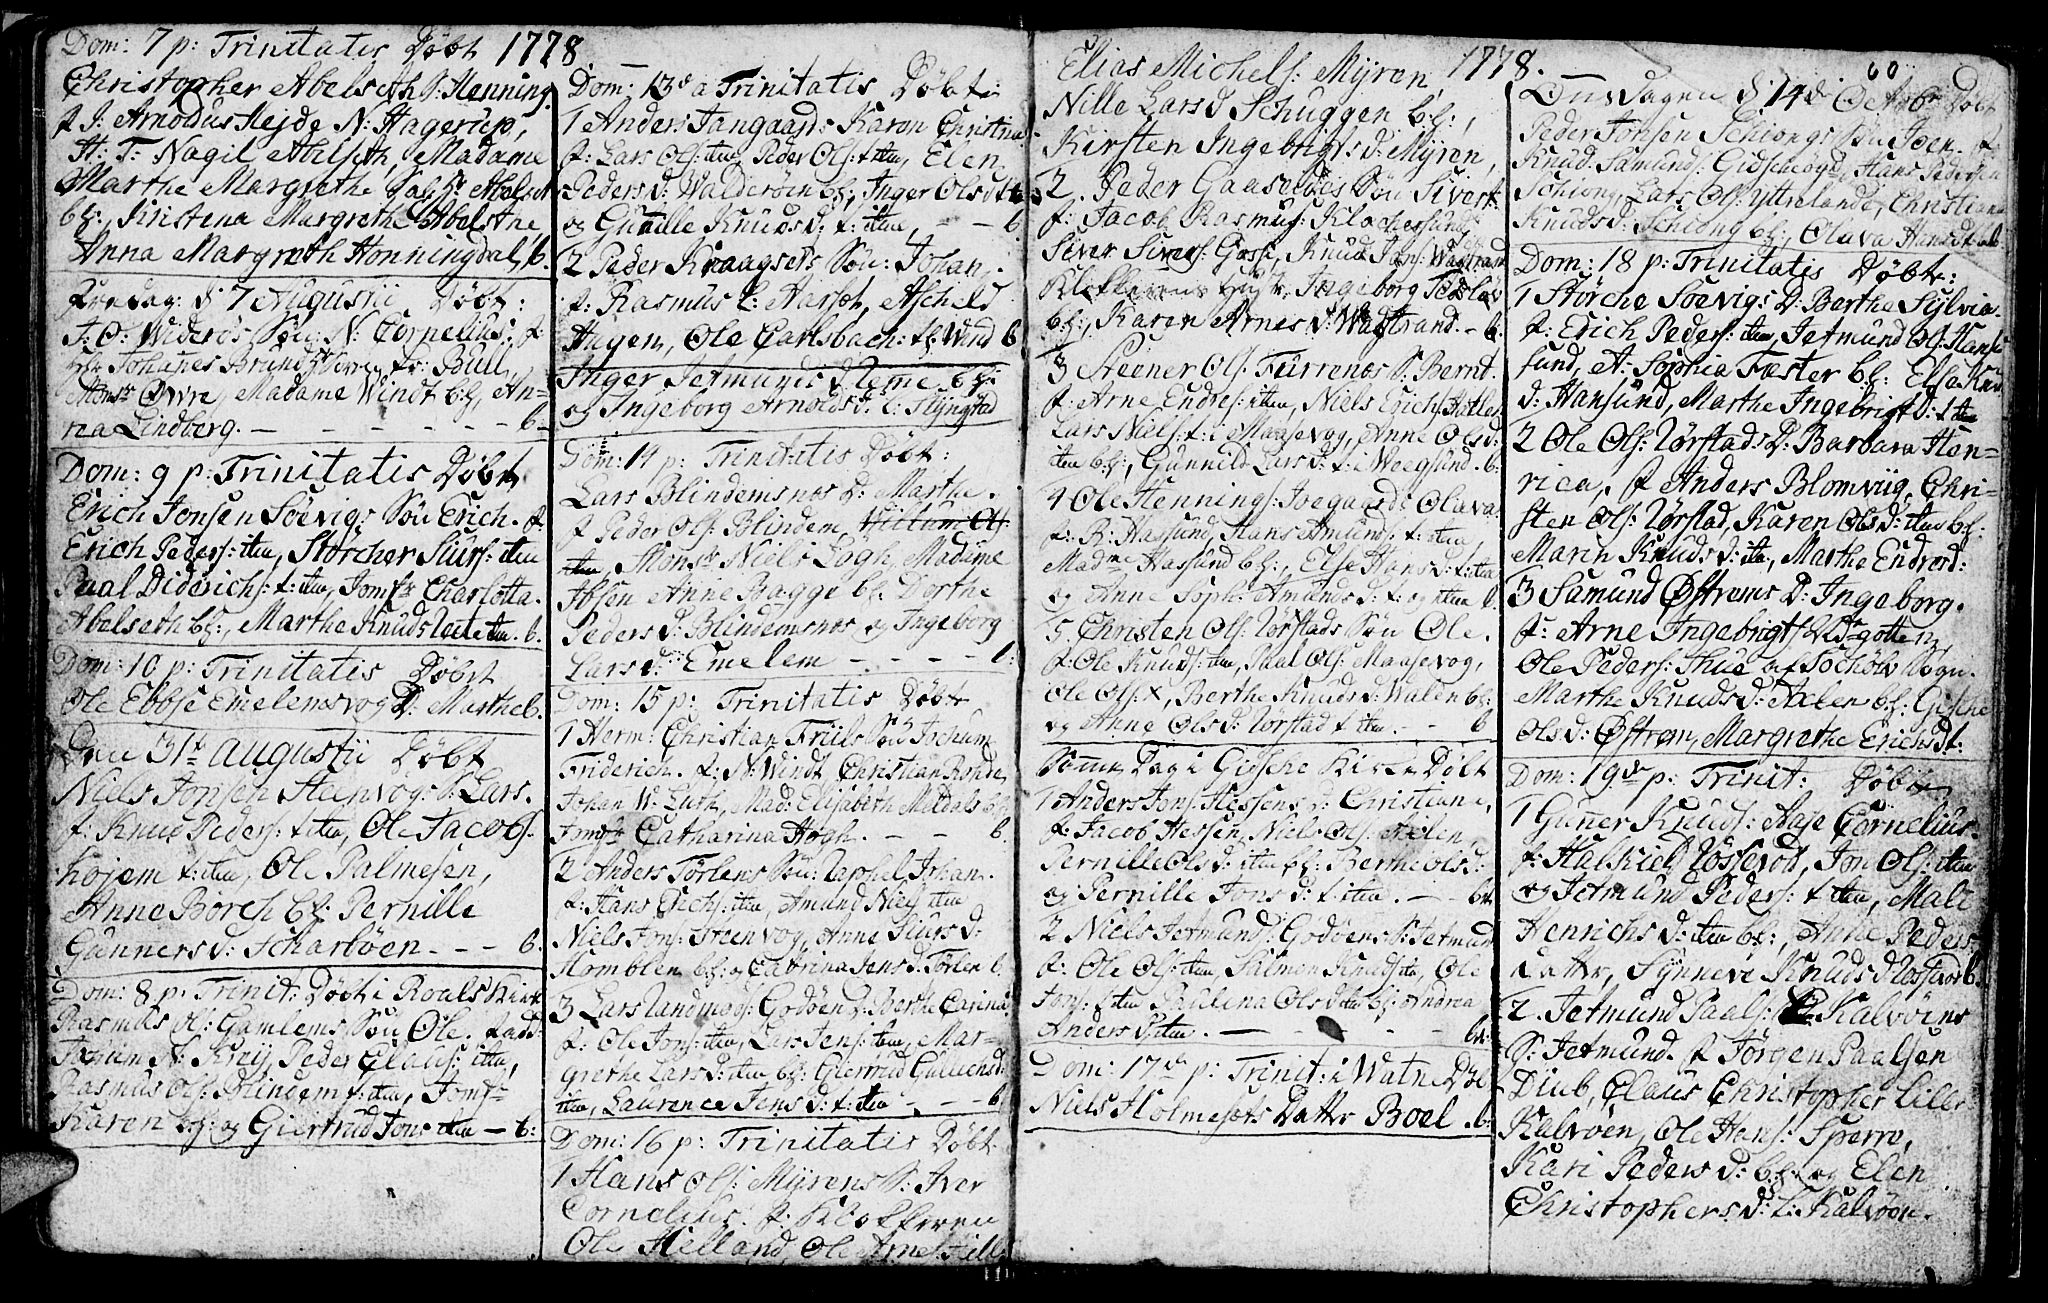 Dom: 7 p: Trinitatis Døbt 1778
Christopher Abelseth S: Henning.
f. J: Arnodus Mejde N: Hagerup,
H: T: Nagil Abelseth, Madame
Marthe Margrethe Abelset
bf:, Kirstena Margrethe Abelsthe
Anna Margreth Honningdal, b.
d 7 Augustii Døbt:
J: O: Widerøs Søn N: Cornelius: f.
Hr Johanes Brun, Bull,
Øvre, Madame Windt bf, An=
nea Lindberg. - - - - - - b.
Dom: 9 p: Trinitatis Døbt
Erich Jonsen Soevigs Søn Erich. f.
Erich Peders: itm, Størcher Siurs: itm
Paal Diderichs: t: itm, Jomfr Charlotta
Abelseth bf:, Marthe Knuds itm. b.
Dom: 10 p: Trinitatis Døbt
Ole Ebbese Emelemsvog D: Marthe b.
Den 31te Augustii Døbt
Niels Jonsen Steenvogs S: Lars.
f: Knud Peders: t itm, Ole Jacobs:
Højem t: itm, Ole Palmesen,
Anne Børes bf: Pernille
Gunners d: Scharbøen - - - b.
Dom: 8 p: Trinit: Døbt i Roals Kirk
Rasmus Ols: Gamlems Søn Ole.
N: Krey, Peder Claus: itm,
Rasmus Ols: Blindem t: itm, Jomfr
Karen bf: og Giertrud Jons itm - b:
Dom: 13de a Trinitatis Døbt:
1 Anders Tangaards Karen Christina
f: Lars Ols: itm, Peder Ols: t itm, Elen
Peders d: Walderøen bf:, Inger Ols d t itm
og Gunille Knuds d: t: itm, - - b.
2 Peder Kraagsets Søn: Johan.
f: Rasmus L: Harset, Ascheld
Hagen, Ole Carlsbach: t: Wind b
Inger Jetmunds d Neme bf:
og Ingeborg Arnolds d: L: Slyngstad
Dom: 14 p: Trinitatis Døbt:
Lars Blindemsnes D: Marthe.
f Peder Ols: Blindem, Willum Ols
itm, Monsr Niels Logh, Madame
Ibsen Anne Bagge bf. Dorthe
Peders d: Blindemsnes og Ingeborg
Lars d: Emelem - - - - b:
Dom: 15 p: Trinitatis Døbt
1 Herm: Christian Friils Søn Jochum
Friderich. f: N: Windt, Christian Rohde,
Johan W: Luth, Mad: Elisabeth Meldals bf
Jomfr Catharina Høgh. - - b.
2 Anders Tørlens Søn: Zaphel Johan.
f: Hans Erichs: itm, Amund Niels itm
Niels Jons: Steenvog, Anne Siurs d:
Homblen bf: og Catrina Jens d: Tørlen b.
3 Lars Landmags: Godøens D: Berthe Carina
f: Ole Jons: itm, Lars Jens: itm, Mar=
grethe Lars d: itm bf: Giertrud Gulliens d:
itm, Laurence Jens d: t: itm - - - b.
Dom: 16 p: Trinitatis Døbt
1 Hans Ols: Myrens S: Iver
Cornelius. f: Klokkeren
Ole Helland, Ole Arnes: Hill
Elias Michels: Myren, 1778.
Nille Lars d Schuggen bf:,
Kirsten Ingebrigts d: Myren,
2. Peder Gaasenæs Søn Sivert
f: Jacob Rasmus: Klochersund
Siver Sivers: Gosse, Knud Jans: Wadstrand
Klokkerens Hustr, Ingeborg
bf:, Karen Arnes d: Wadstrand - b.
3 Steener Ols: Furrenes S: Bernt.
f: Arne Endres: itm, Niels Erichs: Hatles
Lars Niels: t: i Maasevog, Anne Ols d:
itm bf:, Gunnild Lars d: t: i Weegsund. b.
4 Ole Hennings: Joegaards Olava.
f: R: Hassund, Hans Amunds: t: itm,
Madme Hassund bf:, Else Hans d: t: itm
og Anne Soph: Amunds d: t: og itm b.
5. Christen Ols: Rørstads Søn Ole.
f: Ole Knuds: itm, Paal Ols: Maasevog,
Ole Ols: x, Berthe Knuds d: Walen bf:
og Anne Ols d: Rørstad t itm. - - b
Samme Dag i Gidsche Kirke Døbt
1 Anders Jons: Hessens d: Christiana,
f: Jacob Hessen, Niels Ols: Aalen,
Pernille Ols d: itm bf: Berthe Ols d:
og Pernille Jons d: t: itm. - - b.
2 Niels Jetmunds: Godøens S: Jetmund
f: Ole Ols: itm, Salmon Knuds: itm, Ole
Jons: t itm Paulina Ols d itm bf: Andrea
Anders d itm. - - - - - b.
Dom: 17de p: Trinit: i Watne Døbt
Niels Holmesets Datter Boel. b.
60
Onsdagen d 14de Octobr Døbt
Peder Jonsen Schiongs Søn Joen. f.
Knud Samunds: Gidscheoyd, Hans Pedersen
Schiong, Lars Ols: Ytterlande, Christiana
Knuds d: Schiong bf:, Olava Hans d t: b
Dom: 18 p: Trinitatis Døbt:
1 Størche Soevigs D: Berthe Sylvia.
f: Erich Peders: itm, Jetmund Ols: Hanse
sund, A: Sophia Fæster bf: Else Knu
d: Hansund, Marthe Ingebrigt d: t itm
2 Ole Ols: Rørstads D: Barbara Hen=
rica, f Anders Blomviig, Chri=
sten Ols: Rørstad, Karen Ols d: itm bf:
Maren Knuds d: itm, Marthe Endre d:
3 Samund Østrems D: Ingeborg.
f: Arne Ingebrigts:
Ole Peders: Thue af Sochøls Sogn.
Marthe Knuds d: Aalen bf: Gische
Ols d: Østrem, Margrethe Erichs d t:
Dom: 19de p: Trinit: Døbt
1 Gunner Knuds: Aase Cornelius.
f: Halkiel Røssevold, Jon Ols: itm
og Jetmund Peders: t itm, Mali
Henrichs d: itm bf:, Anne Peders=
datter, Synneve Knuds d b.
2. Jetmund Paals: Kalvøens
S: Jetmund. f Jørgen Paalsen
Diub, Claus Christopher Lille
Kalvøen, Ole Hans: Sperre,
Kari Peders d: bf: og Elen
Christophers d: L: Kalvøen.